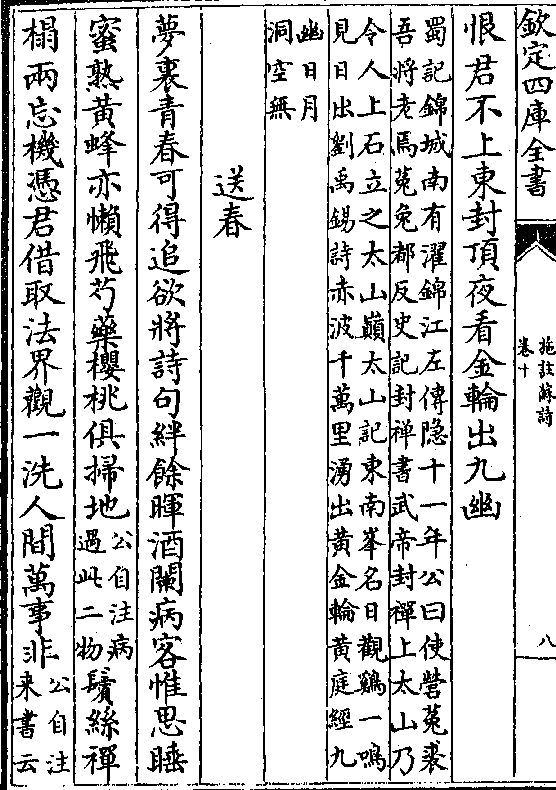 欽定四庫全書
施註蘇詩
卷十
八
恨君不上東封頂夜看金輪出九幽
蜀記錦城南有濯錦江左傳隠十一年公曰使營菟裘
吾將老焉菟兔都反史記封禅書武帝封禪上太山乃
令人上石立之太山巔太山記東南峯名日觀鷄一鳴
見日出劉禹錫詩赤波千萬里湧出黃金輪黃庭經九
幽日月
洞空無
送春
夢裏青春可得追欲將詩句絆餘暉酒闌病客惟思睡
蜜熟黃蜂亦懶飛芍藥櫻桃俱掃地公自注病過此二物鬢絲禪
榻兩忘機憑君借取法界觀一洗人間萬事非公自注來書云